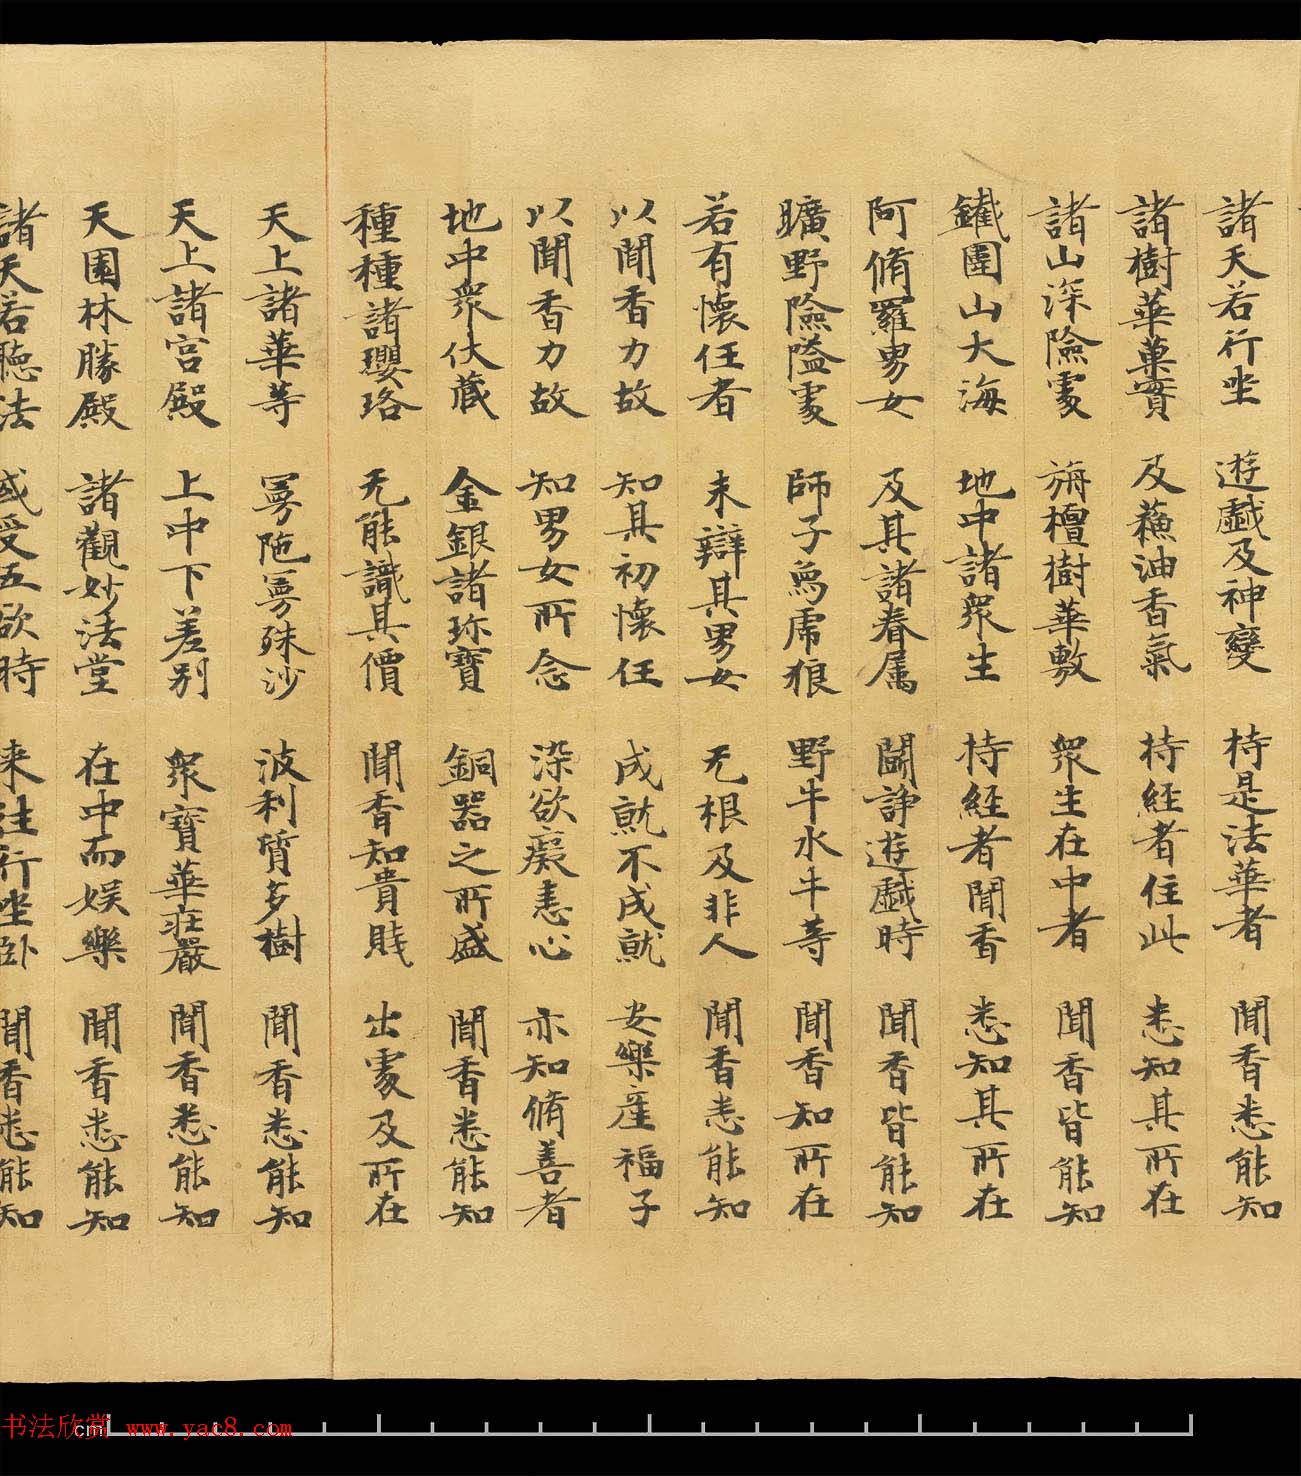 諸天若行坐 遊戲及神變 持是法華者 聞香悉能知
諸樹華菓實 及蘓油香氣 持經者住此 悉知其所在
諸山深險處 旃檀樹華敷 衆生在中者 聞香皆能知
鐵圍山大海 地中諸衆生 持経者聞香 悉知其所在
阿脩羅男女 及其諸眷属 鬪諍遊戲時 聞香皆能知
曠野險隘處 師子象虎狼 野牛水牛等 聞香知所在
若有懷任者 未辯其男女 无根及非人 聞香悉能知
以聞香力故 知其初懷任 成就不成就 安樂產福子
以聞香力故 知男女所念 染欲癡恚心 亦知脩善者
地中衆伏藏 金銀諸珎寶 銅器之所盛 聞香悉能知
種種諸瓔珞 无能識其價 聞香知貴賎 出處及所在
天上諸華等 曼陁曼殊沙 波利質多樹 聞香悉能知
天上諸宮殿 上中下差别 衆寶華莊嚴 聞香悉能知
天園林勝殿 諸觀妙法堂 在中而娛樂 聞香悉能知
諸天若聴法 或受五欲時 来往行坐卧 聞香悉能知
书法欣赏 www.yac8.com
cm